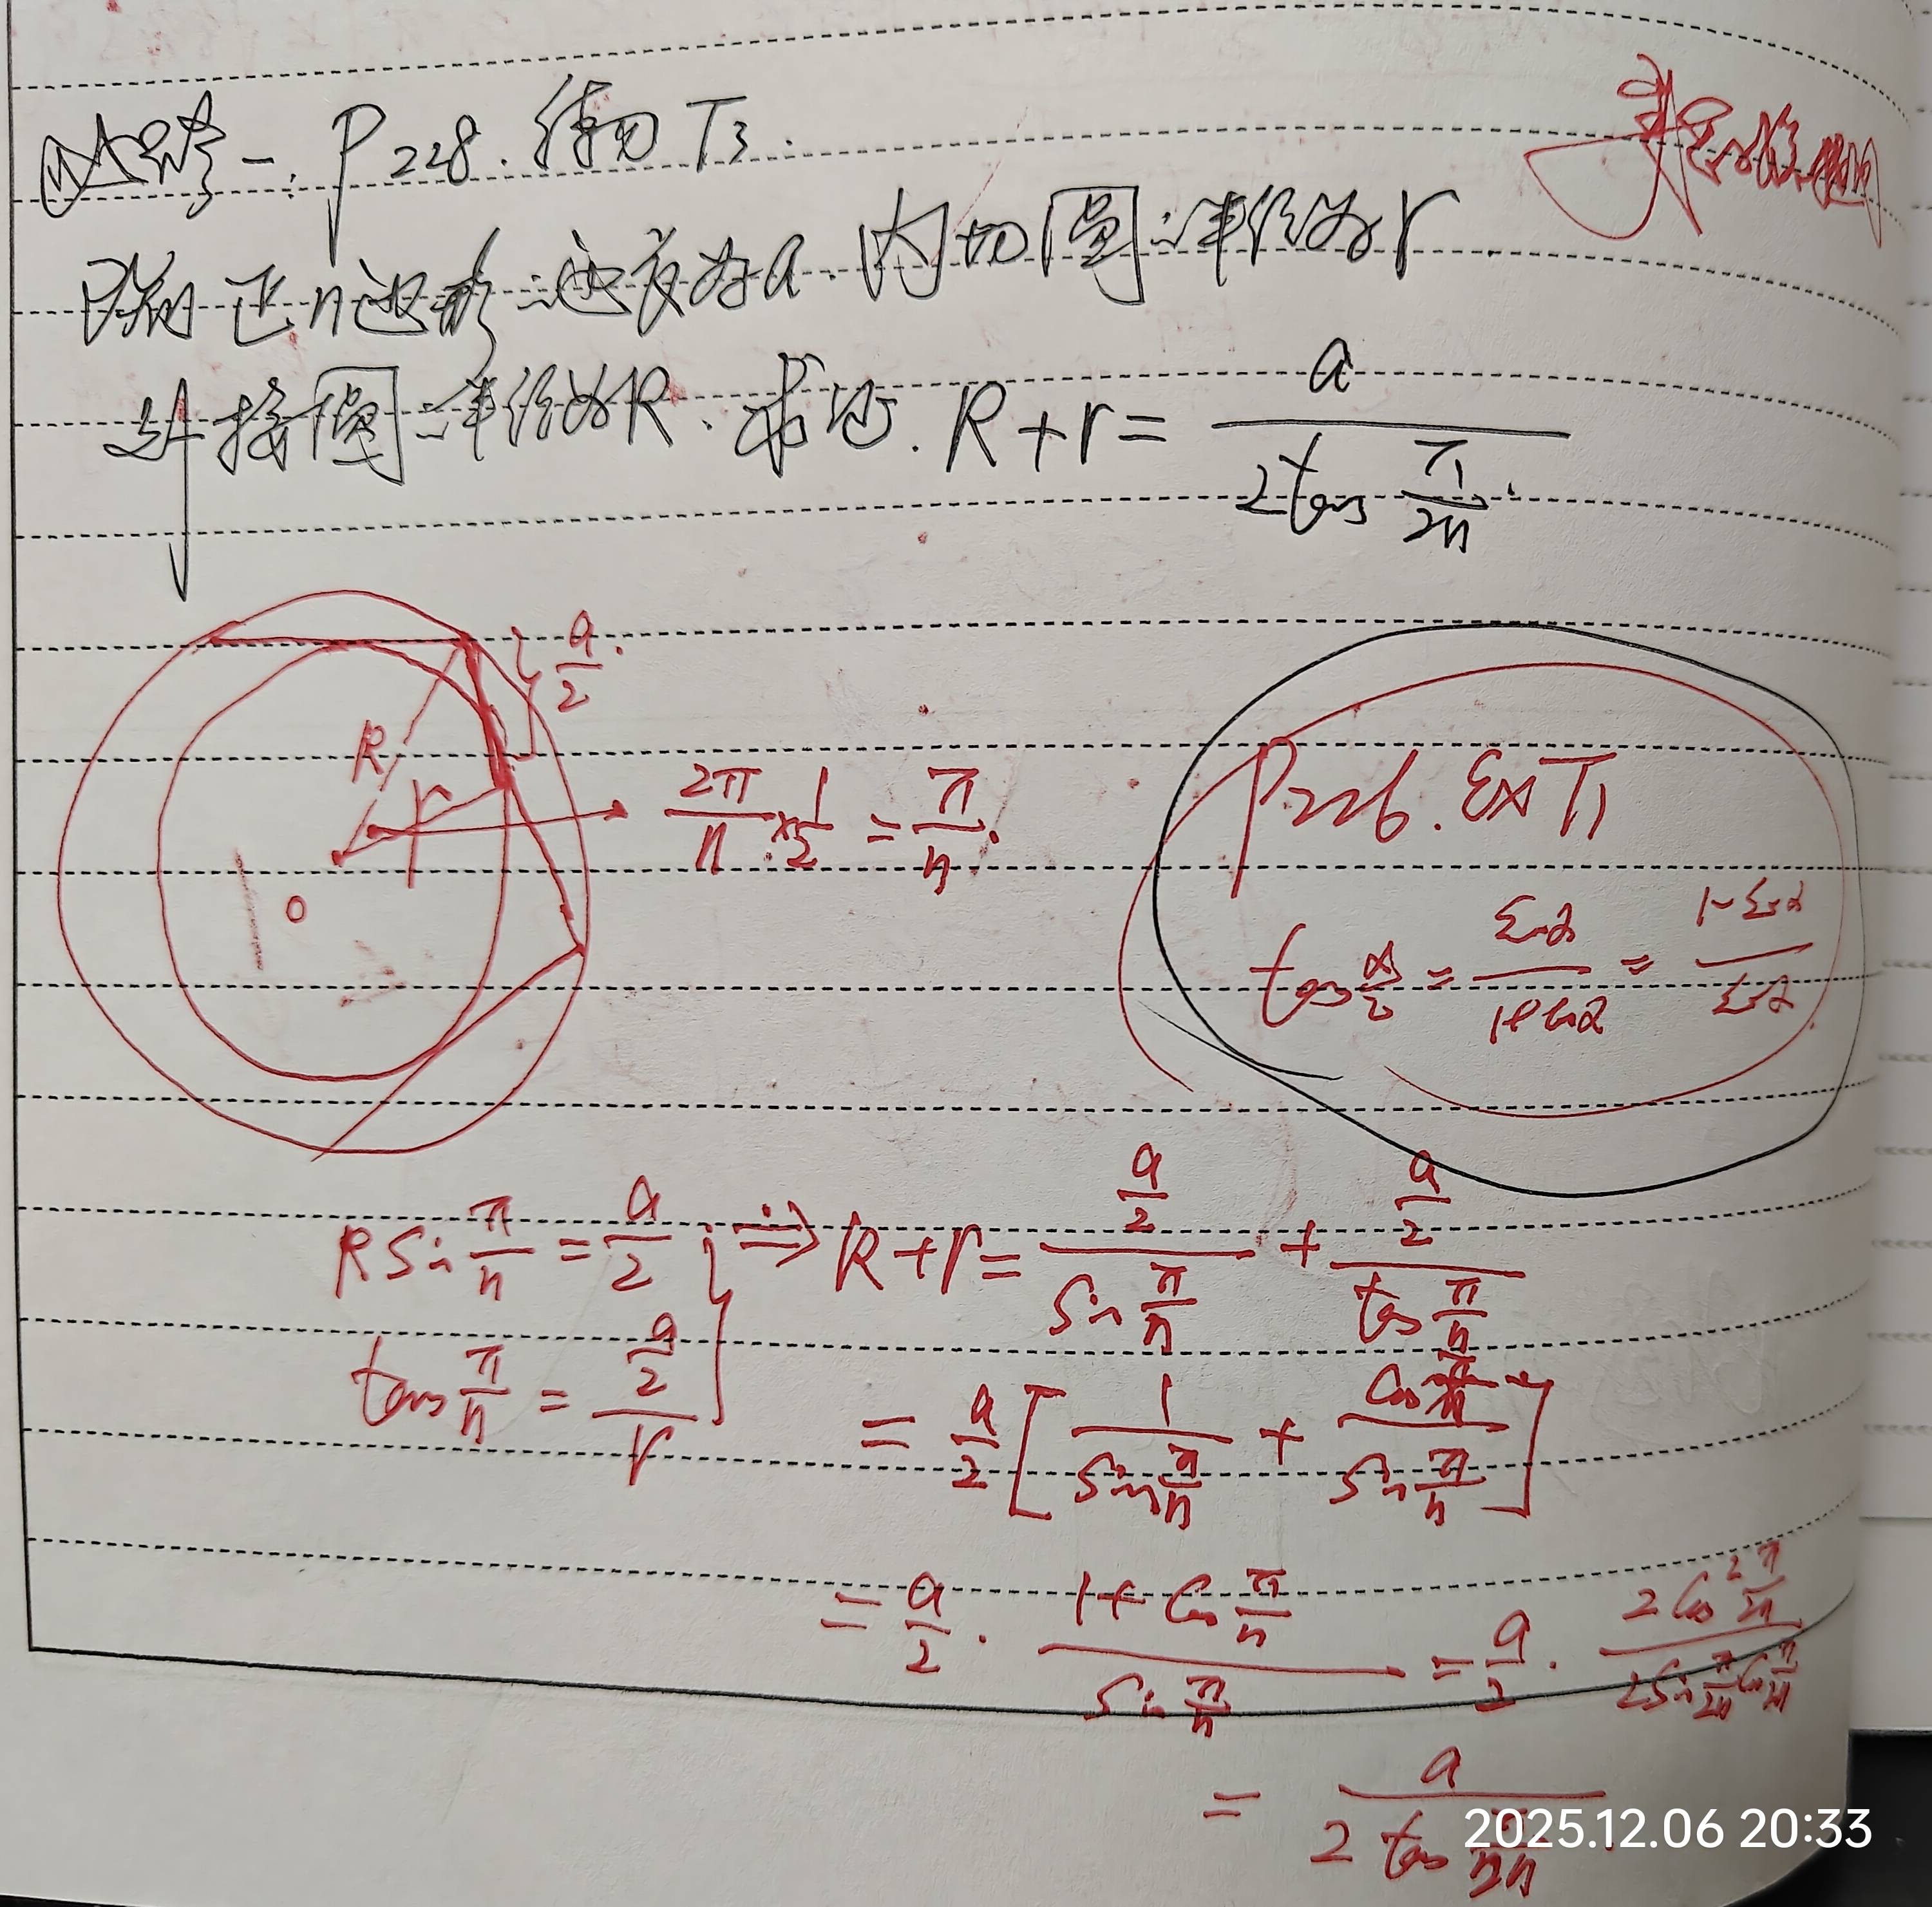 P228. T3.
正n边形边长为a.内切圆半径为r
外接圆半径为R.求证.R+r=\frac{a}{2\tan\frac{\pi}{2n}}.
\frac{a}{2}.
R
r
\frac{2π}{n}×\frac{1}{2}=\frac{π}{n}.
O
P226.Ex T1
\tan\frac{α}{2}=\frac{\sin α}{1+\cos α}=
R\sin\frac{π}{n}=\frac{a}{2}
\tan\frac{π}{n}=\frac{\frac{a}{2}}{r}
⇒R+r=\frac{\frac{a}{2}}{\sin\frac{π}{n}}+\frac{\frac{a}{2}}{\tan\frac{π}{n}}
=\frac{a}{2}[\frac{1}{\sin\frac{π}{n}}+\frac{\cos\frac{π}{n}}{\sin\frac{π}{n}}]
=\frac{a}{2}.\frac{1+\cos\frac{π}{n}}{\sin\frac{π}{n}}=\frac{a}{2}.\frac{2\cos^2\frac{π}{2n}}{2\sin\frac{π}{2n}\cos\frac{π}{2n}}
=\frac{a}{2\tan\frac{π}{2n}}
2025.12.06 20:33